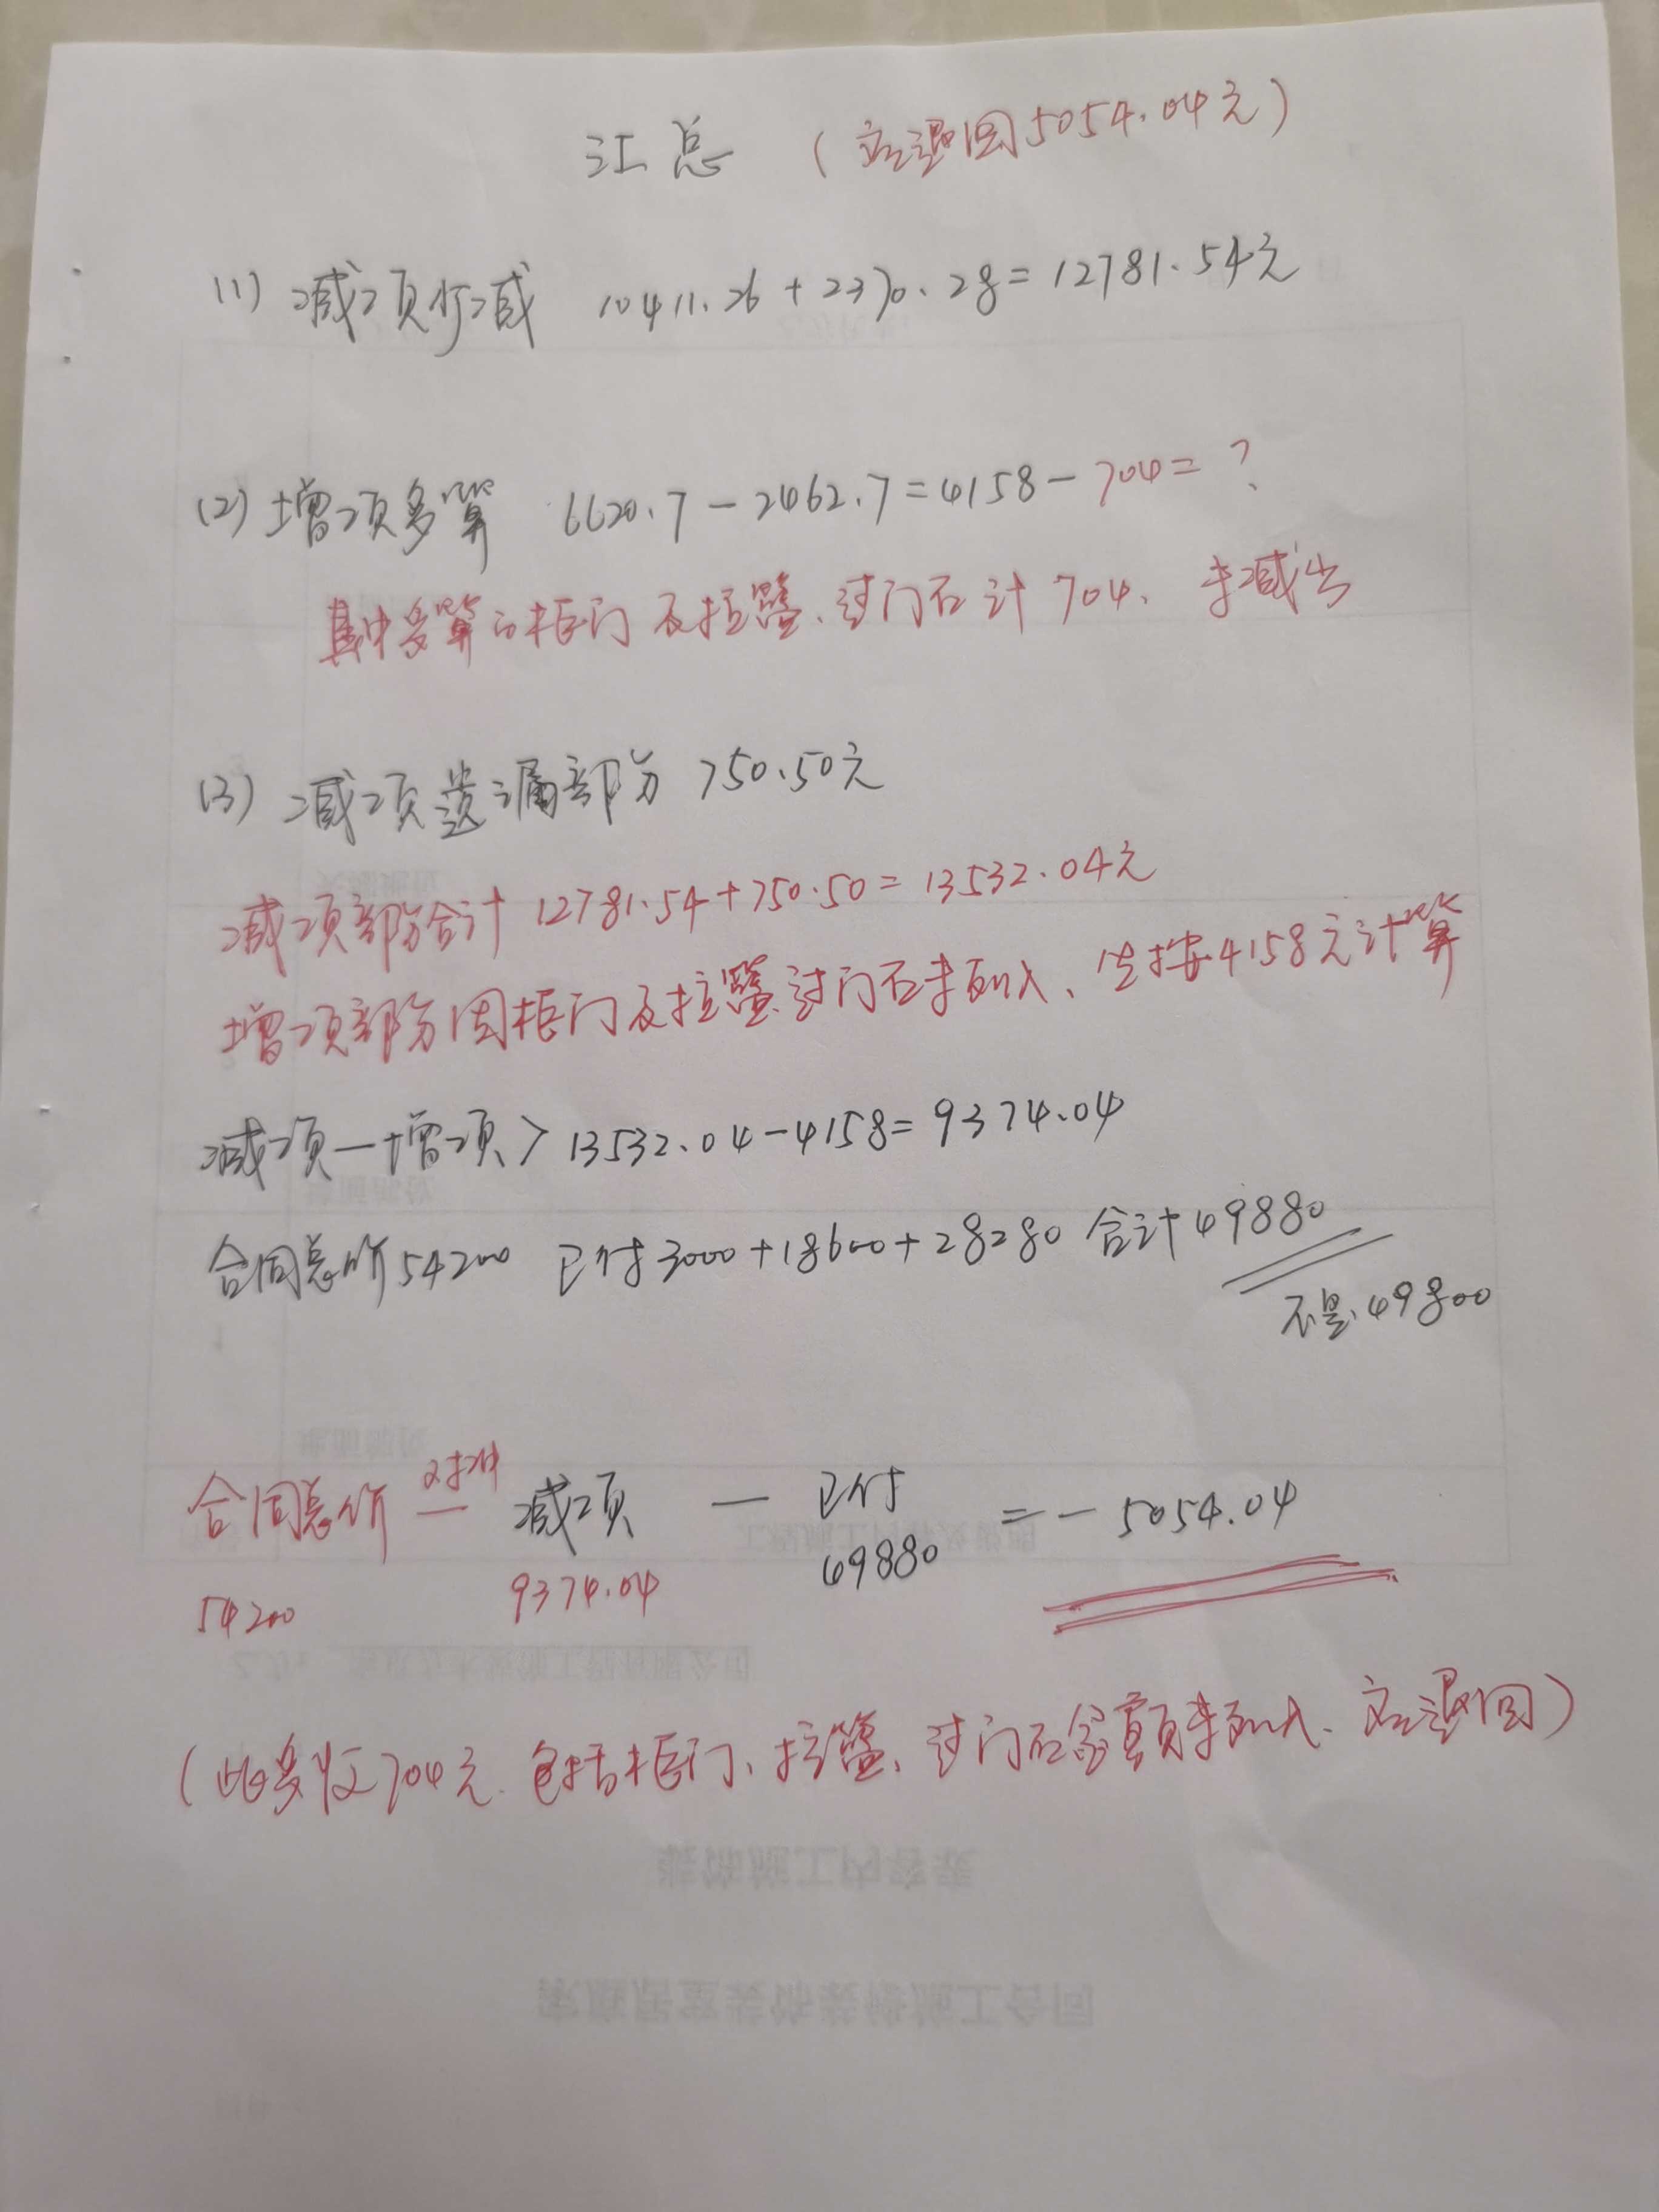 汇总 (应退回5054.04元)
(1) 减项少减 10411.26+2370.28=12781.54元
(2) 增项多算 6620.7-2462.7=4158-704=?
其中多算的柜门及拉篮、过门石计704、未减出
(3) 减项遗漏部分 750.50元
减项部份合计 12781.54+750.50=13532.04元
增项部分因柜门及拉篮.过门石未列入、先按4158元计算
减项-增项> 13532.04-4158=9374.04
合同总价54200 已付3000+18600+28280 合计49880
不是.49800
合同总价 - 对冲减项 - 已付 =-5054.04
54200 9374.04 49880
(此多收704元.包括柜门、拉篮、过门石金额未列入、应退回)